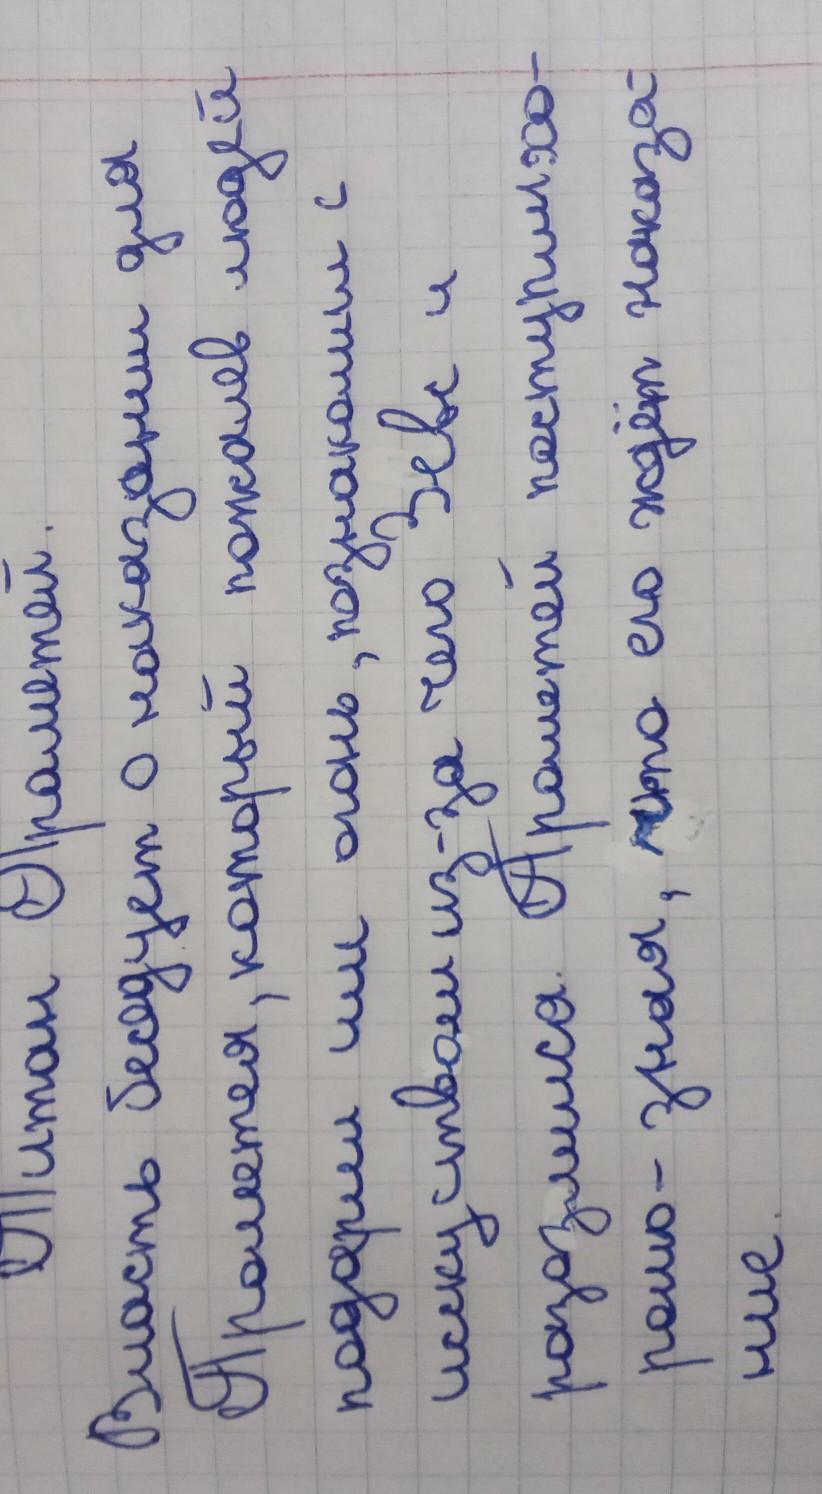 Титан Прометей.
Власть беседует о наказании для
Прометея, который пожалев людей
подарил им огонь, познакомил с
искуством из-за чего Зевс и
разозлился. Прометей поступил хо-
рошо- зная, что его ждёт наказа-
ние.